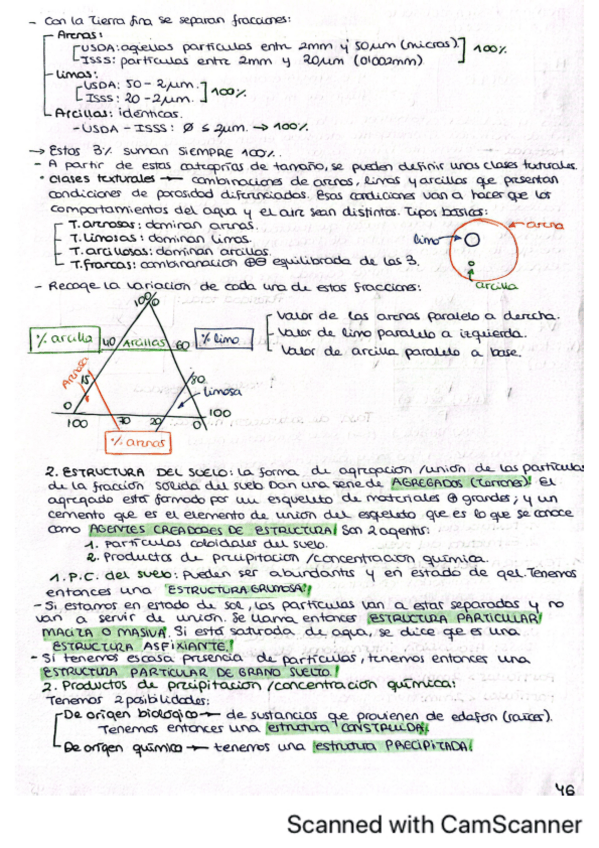 - Con la Tierra fina se separan fracciones:
Arenas:
USDA: aquellas partículas entre 2mm y 50µm (micras).
ISSS: partículas entre 2mm y 20µm (0'002mm)
100%
Limos:
USDA: 50 - 2µm.
ISSS: 20 - 2µm.
100%
Arcillas: idénticas.
- USDA - ISSS: Ø ≤ 2µm. → 100%.
→ Estos 3% suman SIEMPRE 100%.
- A partir de estas categorías de tamaño, se pueden definir unas clases texturales.
• Clases texturales → combinaciones de arenas, limos y arcillas que presentan
condiciones de porosidad diferenciadas. Esas condiciones van a hacer que los
comportamientos del agua y el aire sean distintos. Tipos básicos:
T. arenosas: dominan arenas.
T. limosas: dominan limos.
T. arcillosas: dominan arcillas.
T. francas: combinanación ⊕⊖ equilibrada de las 3.
arena
limo
arcilla
- Recoge la variación de cada una de estas fracciones:
100%
% arcilla
40
Arcillas
60
% limo
Valor de las arenas paralelo a derecha.
Valor de limo paralelo a izquierda.
Valor de arcilla paralelo a base.
Arenosa
15
80
limosa
0
100
100
70
20
0
% arenas
2. ESTRUCTURA DEL SUELO: la forma de agregación /unión de las partículas
de la fracción sólida del suelo Dan una serie de AGREGADOS (Terrones)! El
agregado está formado por un esqueleto de materiales ⊕ grandes; y un
cemento que es el elemento de unión del esqueleto que es lo que se conoce
como AGENTES CREADORES DE ESTRUCTURA! Son 2 agents:
1. Partículas coloidales del suelo.
2. Productos de precipitación /concentración química.
1. P.C. del suelo: Pueden ser abundantes y en estado de gel. Tenemos
entonces una ESTRUCTURA GRUMOSA!
- Si estamos en estado de sol, las partículas van a estar separadas y no
van a servir de unión. Se llama entonces ESTRUCTURA PARTICULAR
MACIZA O MASIVA. Si está saturada de agua, se dice que es una
ESTRUCTURA ASFIXIANTE!
- Si tenemos escasa presencia de partículas, tenemos entonces una
ESTRUCTURA PARTICULAR DE GRANO SUELTO!
2. Productos de precipitación /concentración química:
Tenemos 2 posibilidades:
De origen biológico → de sustancias que provienen de edafon (raíces).
Tenemos entonces una estructura CONSTRUIDA!
De origen químico → tenemos una estructura PRECIPITADA!
46
Scanned with CamScanner